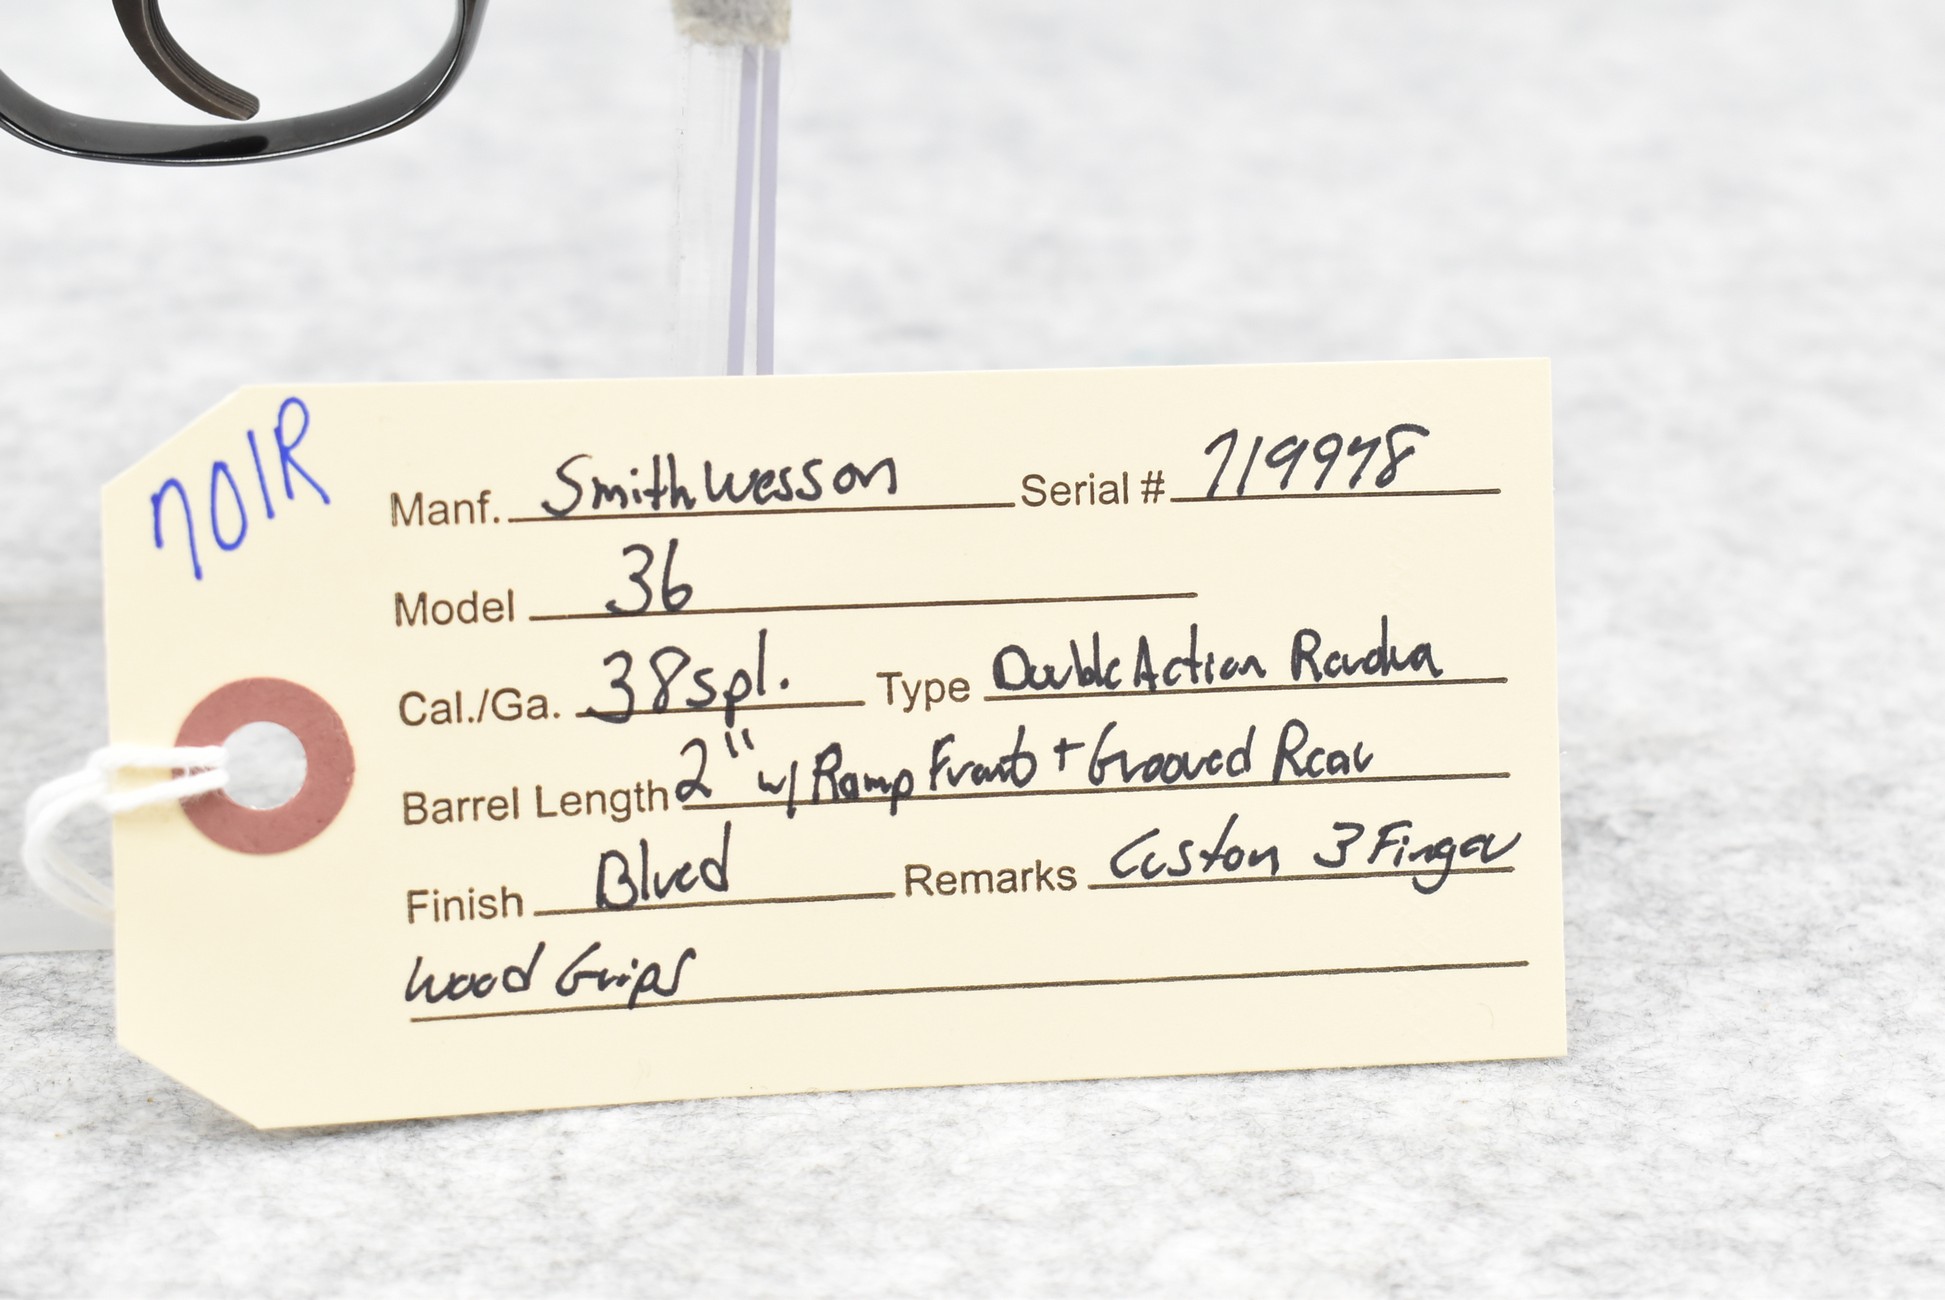 701R
Manf. Smith Wesson Serial # 719978
Model 36
Cal./Ga. 38 spl. Type Double Action Revolver
Barrel Length 2" w/ Ramp Front + Grooved Rear
Finish Blued Remarks Custom 3 Finger
Wood Grips